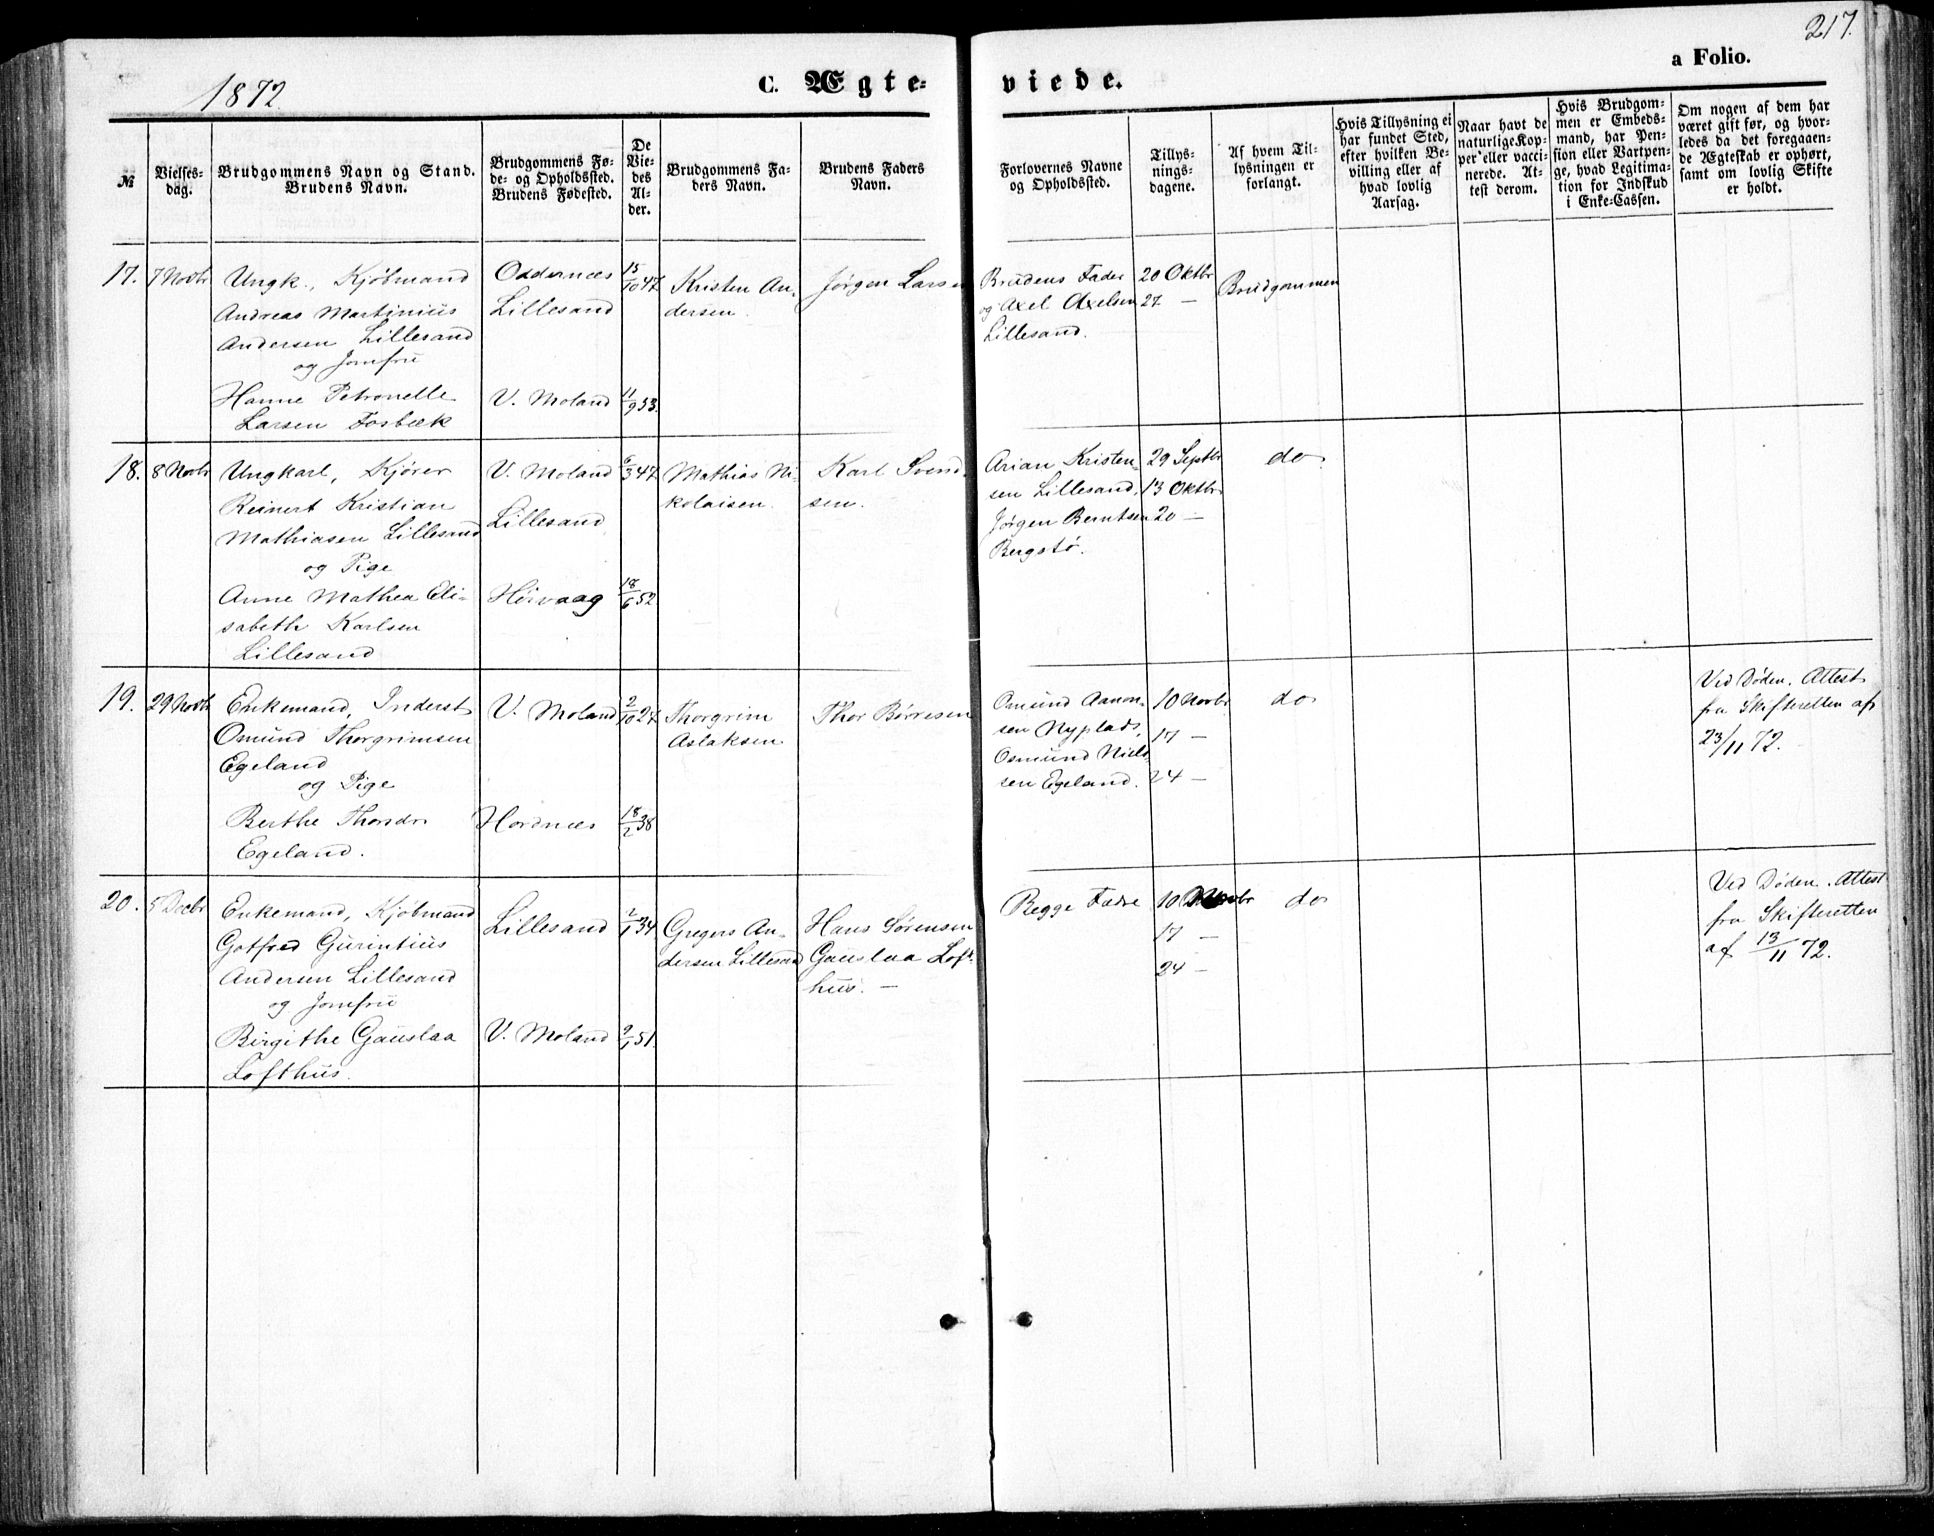 1872
C. Ægte-
viede.
a Folio.
217.
№
Vielses-
dag.
Brudgommens Navn og Stand.
Brudens Navn.
Brudgommens Fø-
de- og Opholdssted.
Brudens Fødested.
De
Vie-
des
Al-
der.
Brudgommens Fa-
ders Navn.
Brudens Faders
Navn.
Forlovernes Navne
og Opholdssted.
Tillys-
nings-
dagene.
Af hvem Til-
lysningen er
forlangt.
Hvis Tillysning ei
har fundet Sted,
efter hvilken Be-
villing eller af
hvad lovlig
Aarsag.
Naar havt de
naturlige Kop-
per eller vacci-
nerede. At-
test derom.
Hvis Brudgom-
men er Embeds-
mand, har Pen-
sion eller Vartpen-
ge, hvad Legitima-
tion for Indskud
i Enke-Cassen.
Om nogen af dem har
været gift før, og hvor-
ledes da det foregaaen-
de Ægteskab er ophørt,
samt om lovlig Skifte
er holdt.
17.
7 Novbr
Ungk., Kjøbmand
Andreas Martinius
Andersen Lillesand
og Jomfru
Hanne Petronelle
Larsen Fosbæk
Oddernæs
Lillesand
V. Moland
15/10 47
11/9 53.
Kristen An-
dersen.
Jørgen Larsen
Brudens Fader
og Axel Axelsen
Lillesand.
20 Oktbr
27 —
Brudgommen
18.
8 Novbr
Ungkarl, Kjører
Reinert Kristian
Mathiasen Lillesand
og Pige
Anne Mathea Eli-
sabeth Karlsen
Lillesand
V. Moland
Lillesand
Høivaag
6/3 47
18/6 52.
Mathias Ni-
kolaisen.
Karl Svend-
sen.
Arian Kristen-
sen Lillesand,
Jørgen Berntsen
Bergstø.
29 Septbr
13 Oktbr
20 —
do.
19.
29 Novbr
Enkemand, Inderst
Omund Thorgrimsen
Egeland
og Pige
Berthe Thorsdr
Egeland.
V. Moland
Hordnæs
2/10 27
18/2 38
Thorgrim
Aslaksen
Thor Børresen
Omund Aanon-
sen Nyplads,
Osmund Niels-
sen Egeland.
10 Novbr
17 —
24 —
do
Ved Døden. Attest
fra Skifteretten af
23/11 72.
20.
5 Decbr
Enkemand, Kjøbmand
Gotfred Gurintius
Andersen Lillesand
og Jomfru
Birgithe Gauslaa
Lofthus.
Lillesand
V. Moland
2/1 34
9/1 51.
Gregers An-
dersen Lillesand
Hans Sørensen
Gauslaa Loft-
hus. —
Begge Fædre
10 Novbr
17 —
24 —
do
Ved Døden. Attest
fra Skifteretten
af 13/11 72.